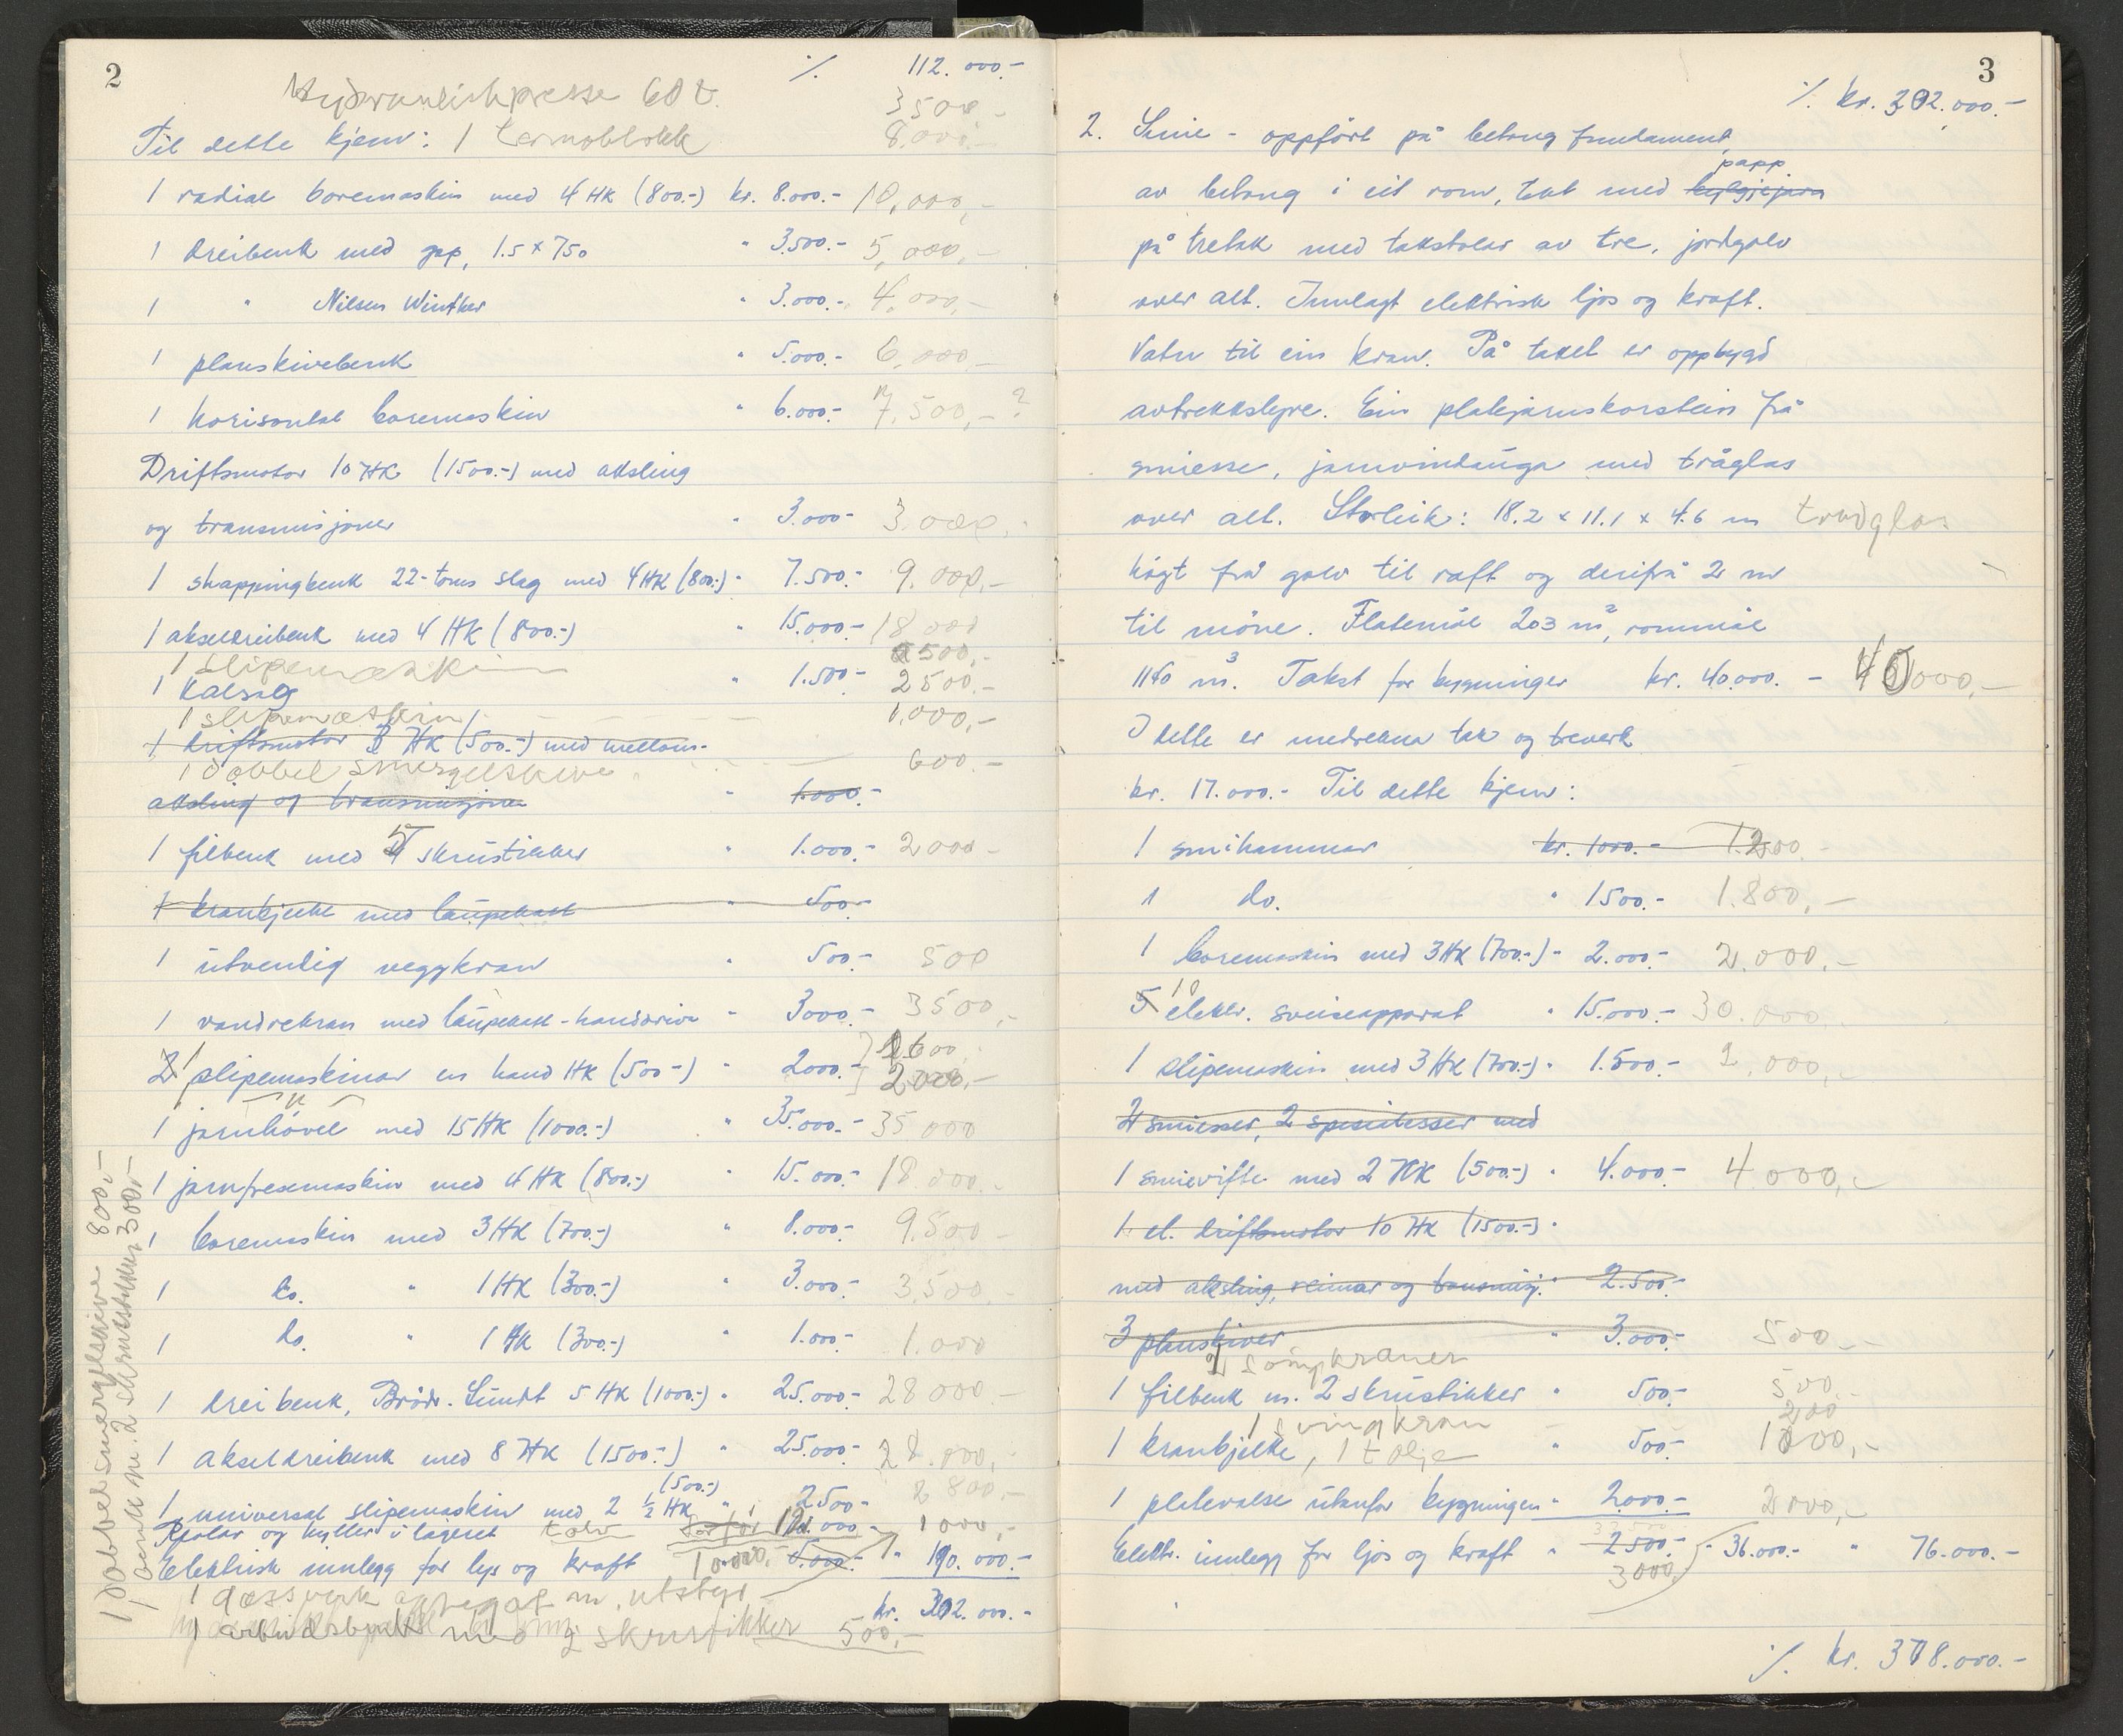 2
٪ 112.000.-
Hydraulikpresse 60 t. 3500.-
Til dette kjem: 1 8.000.-
1 radial boremaskin med 4 HK (800.-) kr. 8.000.- 10,000,-
1 dreibenk med gap, 1.5 x 750 " 3.500.- 5,000,-
1 " Nilsen Winther " 3.000.- 4,000,-
1 planskivebenk " 5.000.- 6,000,-
1 horisontal boremaskin " 6.000.- 7,500,- ?
Driftsmotor 10 HK (1500.-) med aksling
og transmisjoner " 3.000.- 3.000.-
1 shappingbenk 22-toms slag med 4 HK (800.-) " 7.500.- 9.000.-
1 akseldreibenk med 4 HK (800.-) " 15.000.- 18 000
1 slipemaskin 500.-
1 kaldsag " 1.500.- 2500.-
1 slipemaskin 1.000,-
1 driftsmotor 3 HK (500.-) med mellom-
1 dobbel smergelskive 600.-
aksling og transmisjoner " 1.000.-
1 filbenk med 5 skrustikker " 1.000.- 2000.-
1 kranbjelke med laupekatt " 500.-
1 utvendig veggkran " 500.- 500
1 vandrekran med laupekatt - handdriven " 3000.- 3500,-
2 1 slipemaskinar en hand HK (500.-) " 2000.- 1600.-
2000,-
1 jarnhövel med 15 HK (1000.-) " 35.000.- 35 000
1 jarnfresemaskin med 4 HK (800.-) " 15.000.- 18.000.-
1 boremaskin med 3 HK (700.-) " 8.000.- 9.500
1 do. " 1 HK (300.-) " 3.000.- 3.500.-
1 do. " 1 HK (300.-) " 1.000.- 1.000
1 dreibenk, Brödr. Sundt 5 HK (1000.-) " 25.000.- 28 000.-
1 akseldreibenk med 8 HK (1500.-) " 25.000.- 28.000,-
(500.-)
1 universal slipemaskin med 2 ½ HK " 2500.- 2 800,-
Reolar og hyller i lageret 1000,-
Elektrisk innlegg for lys og kraft 10.000, 5.000.- " 190.000.-
1 gassverk aggregat m. utstyr
kr. 302.000.-
1 arbeidsbenk med 2 skrustikker 500,-
1 dobbel smergelskive 800.-
1 benk m. 2 skrustikker 300.-
3
٪ kr. 302.000.-
2. Smie - oppfört på betong fundament,
papp
av betong i eit rom, tekt med bylgjejarn
på tretak med takstolar av tre, jordgolv
over alt. Innlagt elektrisk ljos og kraft.
Vatn til ein kran. På taket er oppbygd
avtrekksløyre. Ein platejarnskorstein frå
smiesse, jarnvindauga med trådglas
over alt. Storleik: 18.2 x 11.1 x 4.6 m tradglas
högt frå golv til raft og derifrå 2 m
til möne. Flatemål 203 m², rommål
1140 m³. Takst for bygningar kr. 40.000.- 45000,-
I dette er medrekna tak og treverk
kr. 17.000.- Til dette kjem:
1 smihammar kr. 1000.- 1.200.-
1 do. " 1500.- 1.800,-
1 boremaskin med 3 HK (700.-) " 2.000.- 2.000,-
5 10 elektr. sveiseapparat " 15.000.- 30.000.
1 slipemaskin med 3 HK (700.-) " 1.500.- 2,000,-
4 smiesser, 2 spesialesser med
1 smievifte med 2 HK (500.-) " 4.000.- 4.000,-
1 el. driftsmotor 10 HK (1500.-) "
med aksling, reimar og transmisj. " 2.500.-
3 planskiver " 3.000.- 500.-
2 svingkraner
1 filbenk m. 2 skrustikker " 500.- 500.-
1 svingkran 200
1 kranbjelke, 1 talje " 500.- 1000,-
1 platevalse utanfor bygningen " 2.000.- 2000,-
Elektr. innlegg for ljos og kraft " 2500.- " 36.000.- " 76.000.-
3000,
٪ kr. 378.000.-